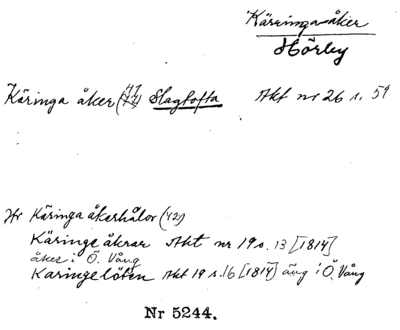 Käringa åker
Hörby
Käringa åker (42) Slagtofta Akt nr 26 s. 59
Hr Käringa åkerhålor (42)
Käringe åkrar Akt nr 19 s. 13 [1814]
åker i Ö. Vång
Käringelöten Akt 19 s. 16 [1814] äng i Ö. Vång
Nr 5244.